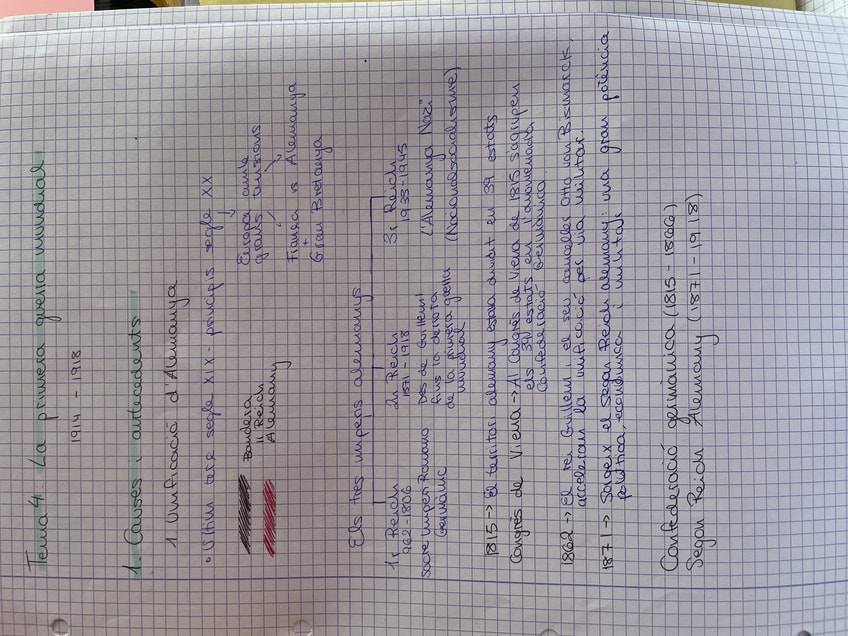 Tema 4 La primera guerra mundial
1914 - 1918
1. Causes i antecedents
1 Unificació d'Alemanya
• Últim terç segle XIX - principis segle XX
Europa amb
grans tensions
França vs Alemanya
+
Gran Bretanya
Bandera
II Reich
Alemany
Els tres imperis alemanys
1r Reich
962-1806
Sacre Imperi Romano
Germànic
2n Reich
1871-1918
Des de Guillem I
fins la derrota
de la primera guerra
mundial
3r Reich
1933-1945
L'Alemanya Nazi
(Nacionalsocialisme)
1815 -> El territori alemany estava dividit en 39 estats
Congrés de Viena -> Al Congrés de Viena de 1815 s'agrupen
els 39 estats en l'anomenada
Confederació Germànica
1862 -> El rei Guillem i el seu canceller Otto von Bismarck,
acceleraran la unificació per via militar.
1871 -> Sorgeix el Segon Reich alemany: una gran potència
política, econòmica i militar
Confederació germànica (1815-1866)
Segon Reich Alemany (1871-1918)